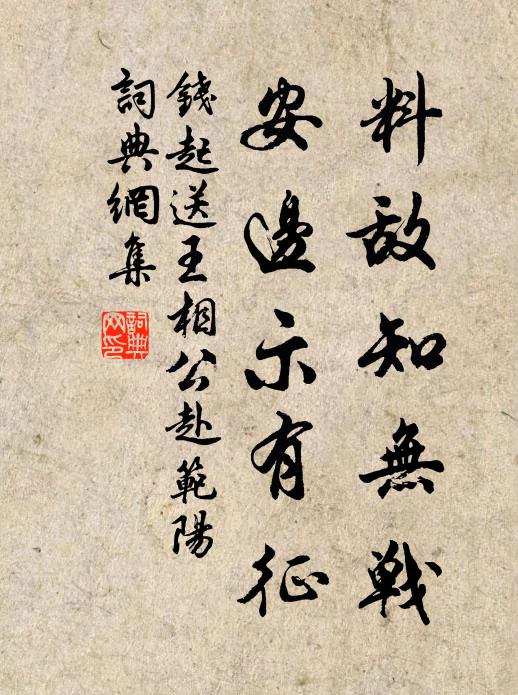 料敌知無戦
安邊示有征
錢起送王相公赴範陽
詞典網集
詞典
网印